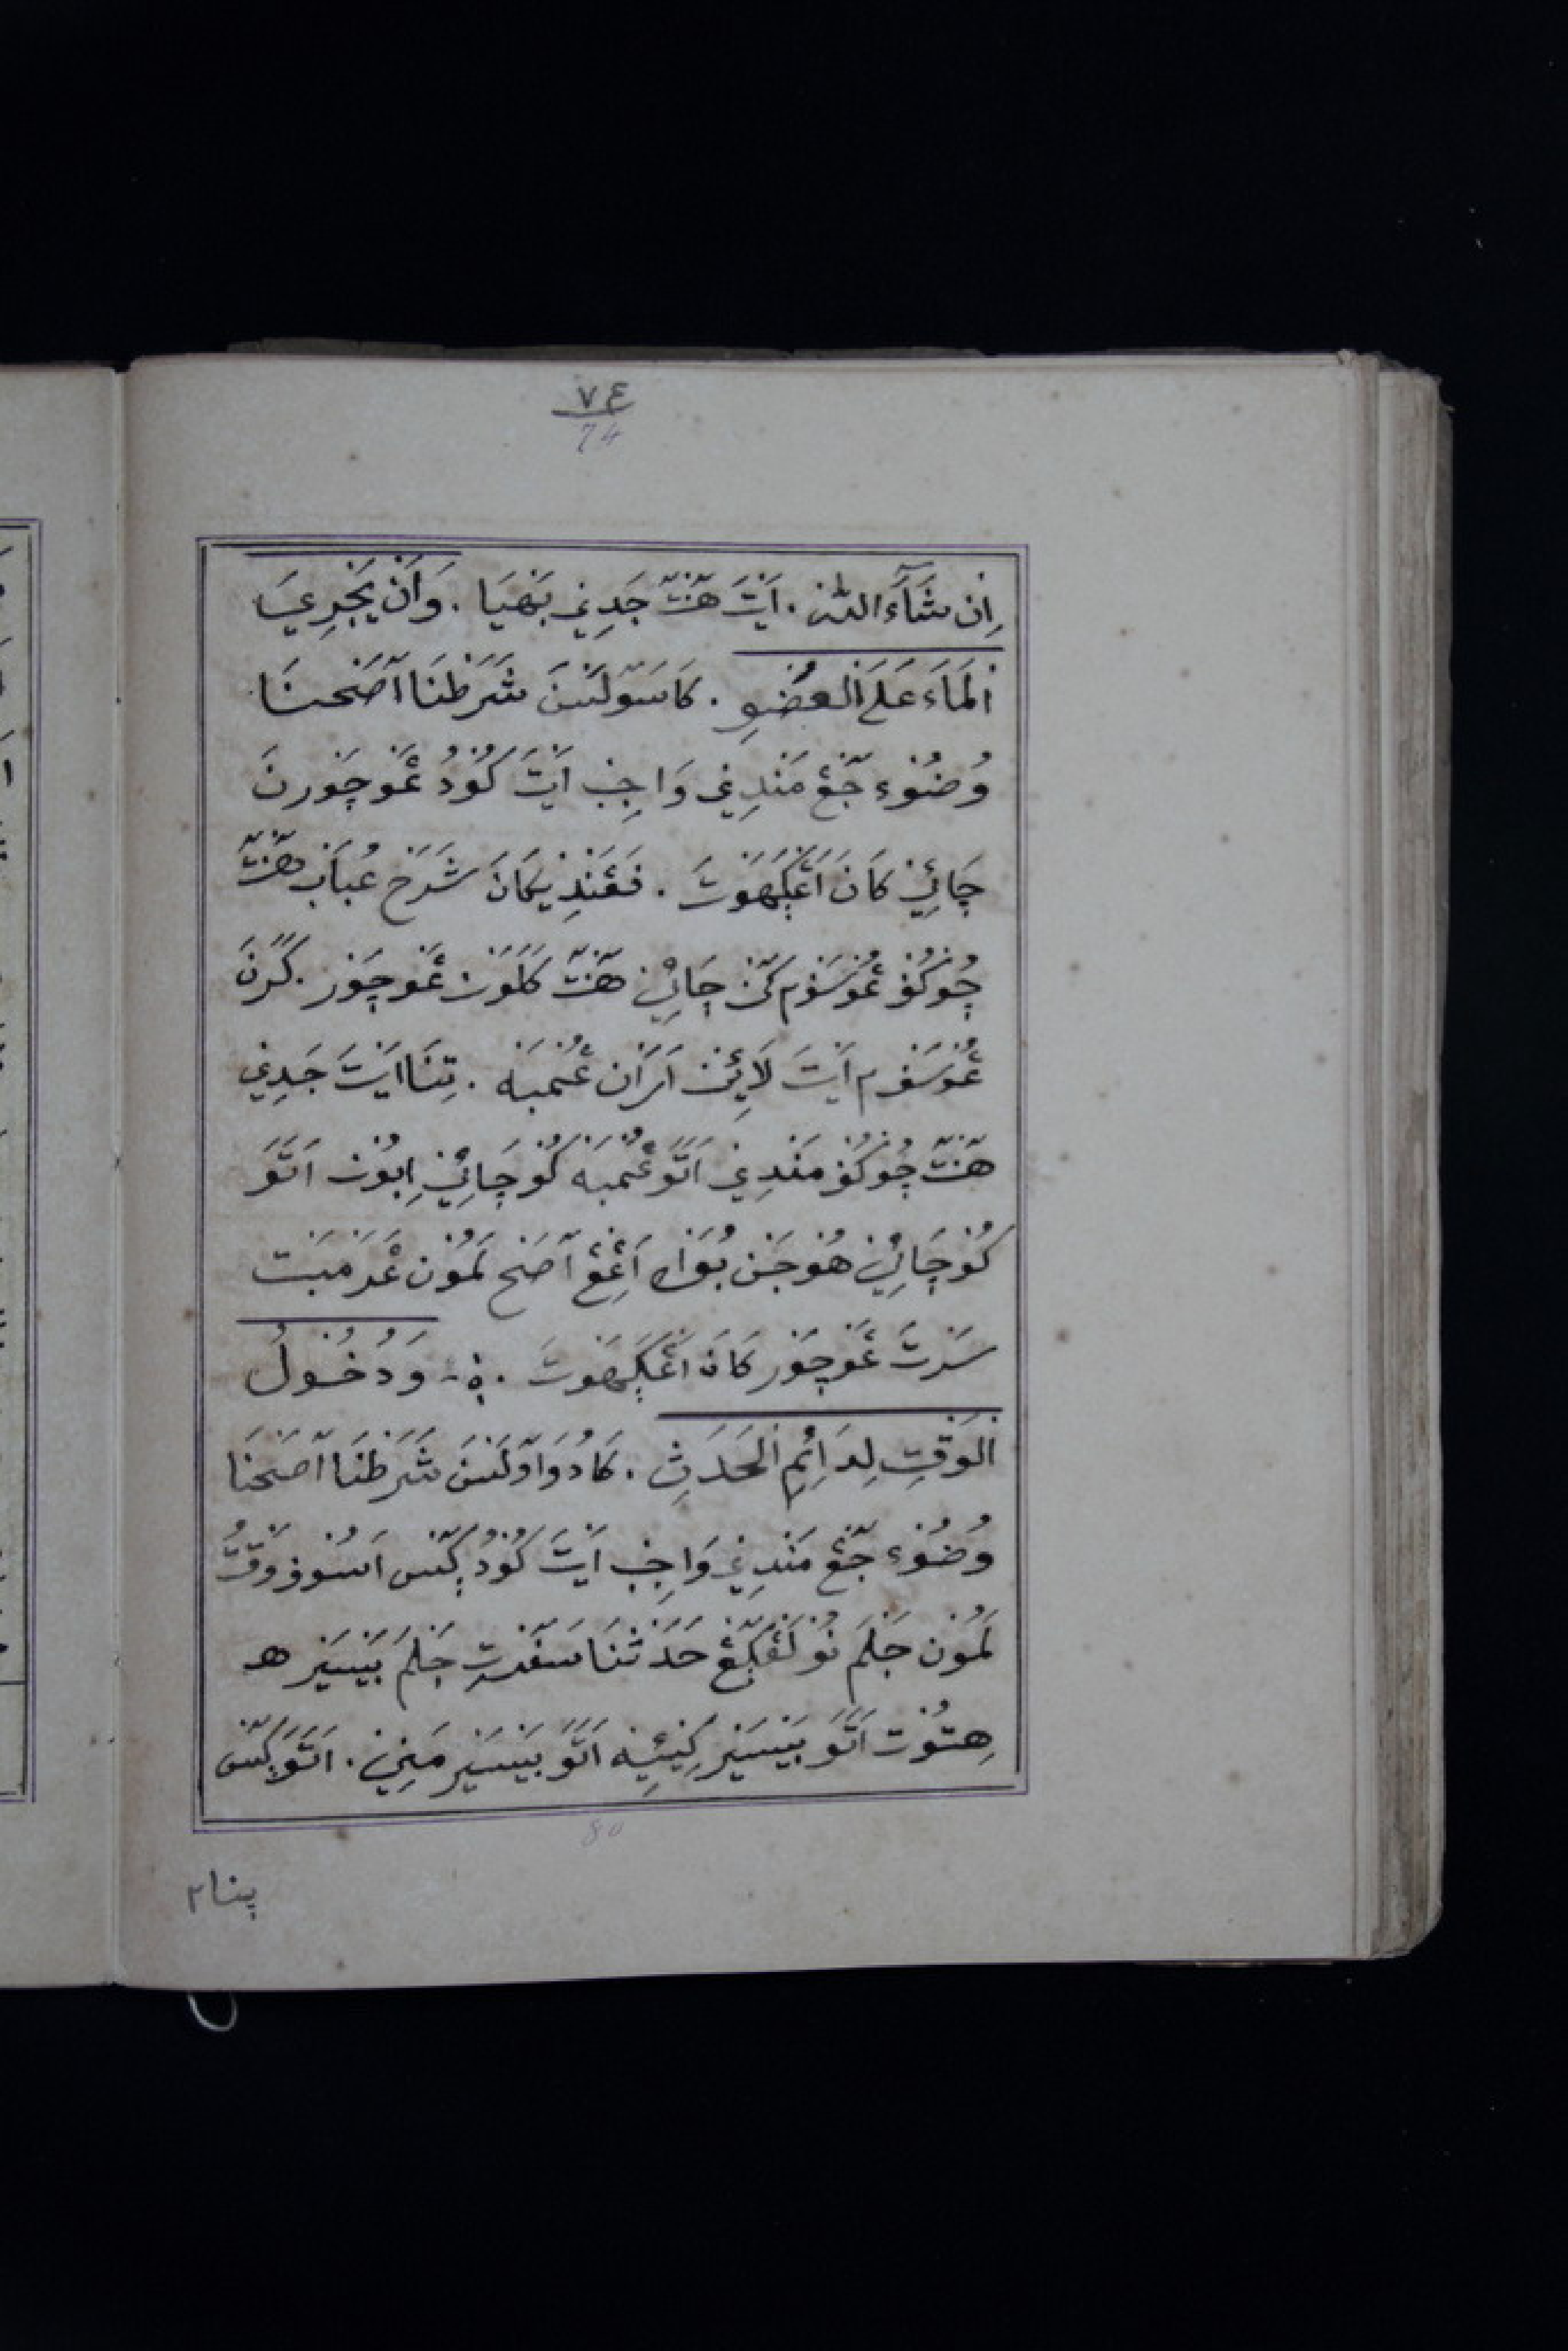 ٧٤
74
اِن شَآءَ اللّٰه. اَيْتَ هَنْتَ جَدِيْ بَهَيَا. وَاَنْ يَجْرِيَ
الْمَاءَ عَلَى الْعُضْوِ. كَاسَوْلَسْنَ شَرَطْنَا اَصَحْنَا
وُضُوْء جَڠْ مَنْدِيْ وَاجِب اَيْتَ كُوْدُ ڠَوْچَوْرنَ
چَائِيْ كَانَ اَڠْݢَهَوْتَ. فَڠَنْدِيْكَانَ شَرَح عُبَابْ هَنْتَ
چُوْكُوْ ڠُوْسَوْم كَنْ چَائِيْ هَنْتَ كَلَوَنْ ڠَوْچَوْر. كَرَنَ
ڠُوْسَوْم اَيْتَ لَائِنْ اَرَانْ ڠُمْبَهْ. تِنَا اَيْتَ جَدِيْ
هَنْتَ چُوْكُوْ مَنْدِيْ اَتَوَ ڠُمْبَهْ كُوْ چَائِيْ اِبُوْنْ اَتَوَ
كُوْ چَائِيْ هُوْجَنْ بُوَاه اَڠِڠْ اَصَح لَمُوْن ڠَرَمْبَت
سَرْتَ ڠَوْچَوْر كَانَ اَڠْݢَهَوْتَ. ه - وَدُخُوْلُ
الْوَقْتِ لِدَائِمِ الْحَدَثِ. كَادُوَا وَلَسْنَ شَرَطْنَا اَصَحْنَا
وُضُوْء جَڠْ مَنْدِيْ وَاجِب اَيْتَ كُوْدُ ݢَسْ اَسُوْف وَقْتُ
لَمُوْن جَلَمَ نُوْ لَڠْݢَڠْ حَدَثْنَا سَفَرْتِ جَلَمَ بَيْسَيْر ه
هِتُوْت اَتَوَ بَيْسَيْر كِيْئِيْه اَتَوَ بَيْسَيْر مَنِيْ. اَتَوَ ݢَسْ
80
پنام